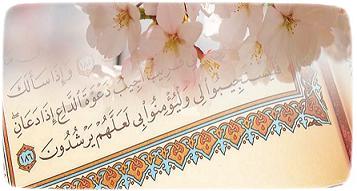 وَإِذَا سَأَلَكَ
قَرِيبٌ أُجِيبُ دَعْوَةَ ٱلدَّاعِ إِذَا دَعَانِ ۖ
فَلْيَسْتَجِيبُوا۟ لِى وَلْيُؤْمِنُوا۟ بِى لَعَلَّهُمْ يَرْشُدُونَ ١٨٦